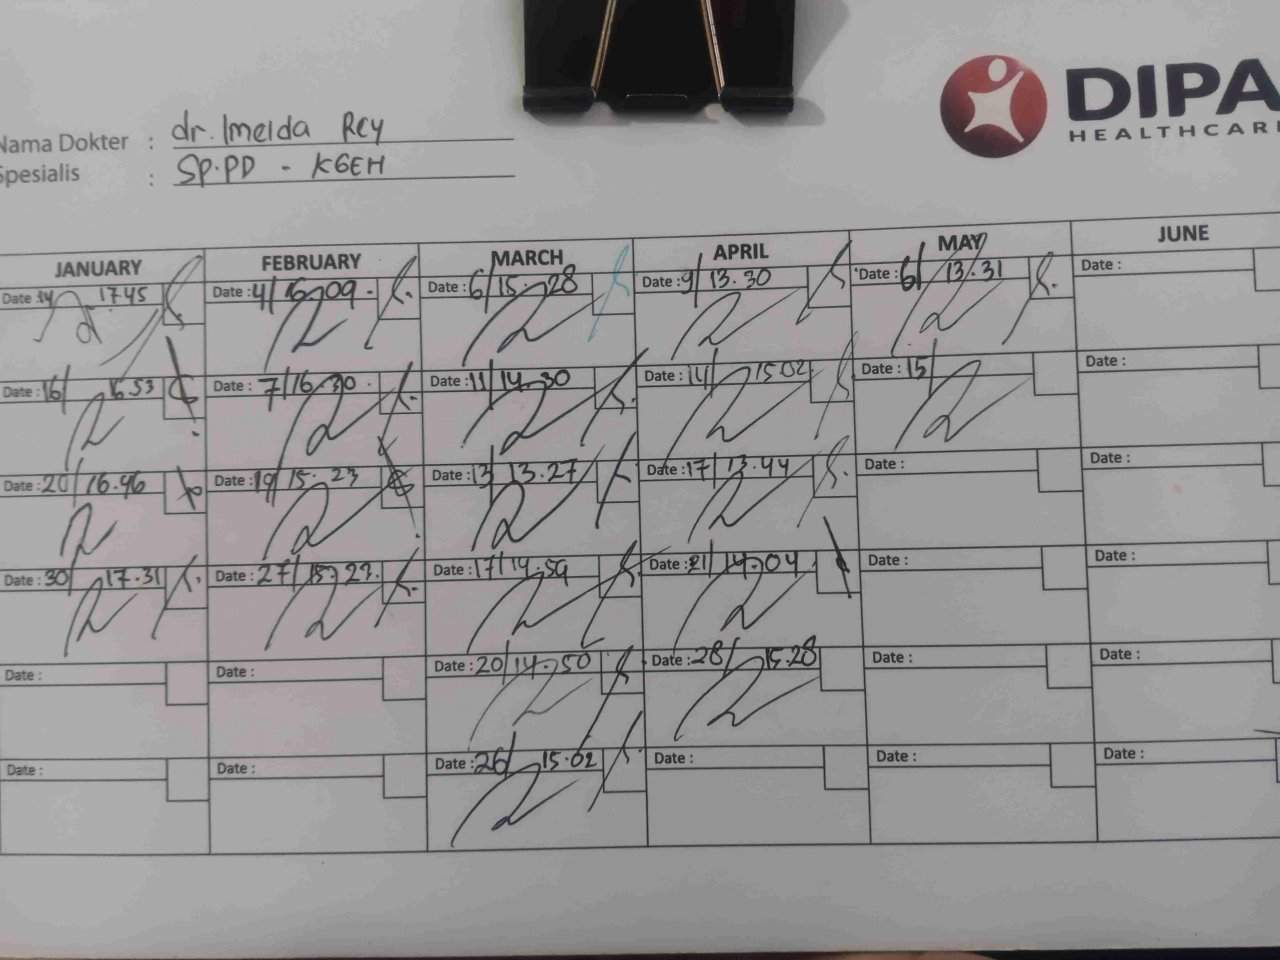 DIPA
HEALTHCAR
Nama Dokter : dr. Imelda Rey
Spesialis : SP.PD - KGEH
JANUARY FEBRUARY MARCH APRIL MAY JUNE
Date : 14 17.45 Date : 4/ 16.09 Date : 6/ 15.28 Date : 9/ 13.30 Date : 6/ 13.31 Date :
Date : 16/ 16.53 Date : 7/ 16.30 Date : 11/ 14.30 Date : 14/ 15.02 Date : 15/ Date :
Date : 20/ 16.46 Date : 19/ 15.23 Date : 13/ 13.27 Date : 17/ 13.44 Date : Date :
Date : 30/ 17.31 Date : 27/ 15.23 Date : 17/ 14.59 Date : 21/ 14.04 Date : Date :
Date : Date : Date : 20/ 14.50 Date : 28/ 15.28 Date : Date :
Date : Date : Date : 26/ 15.02 Date : Date : Date :